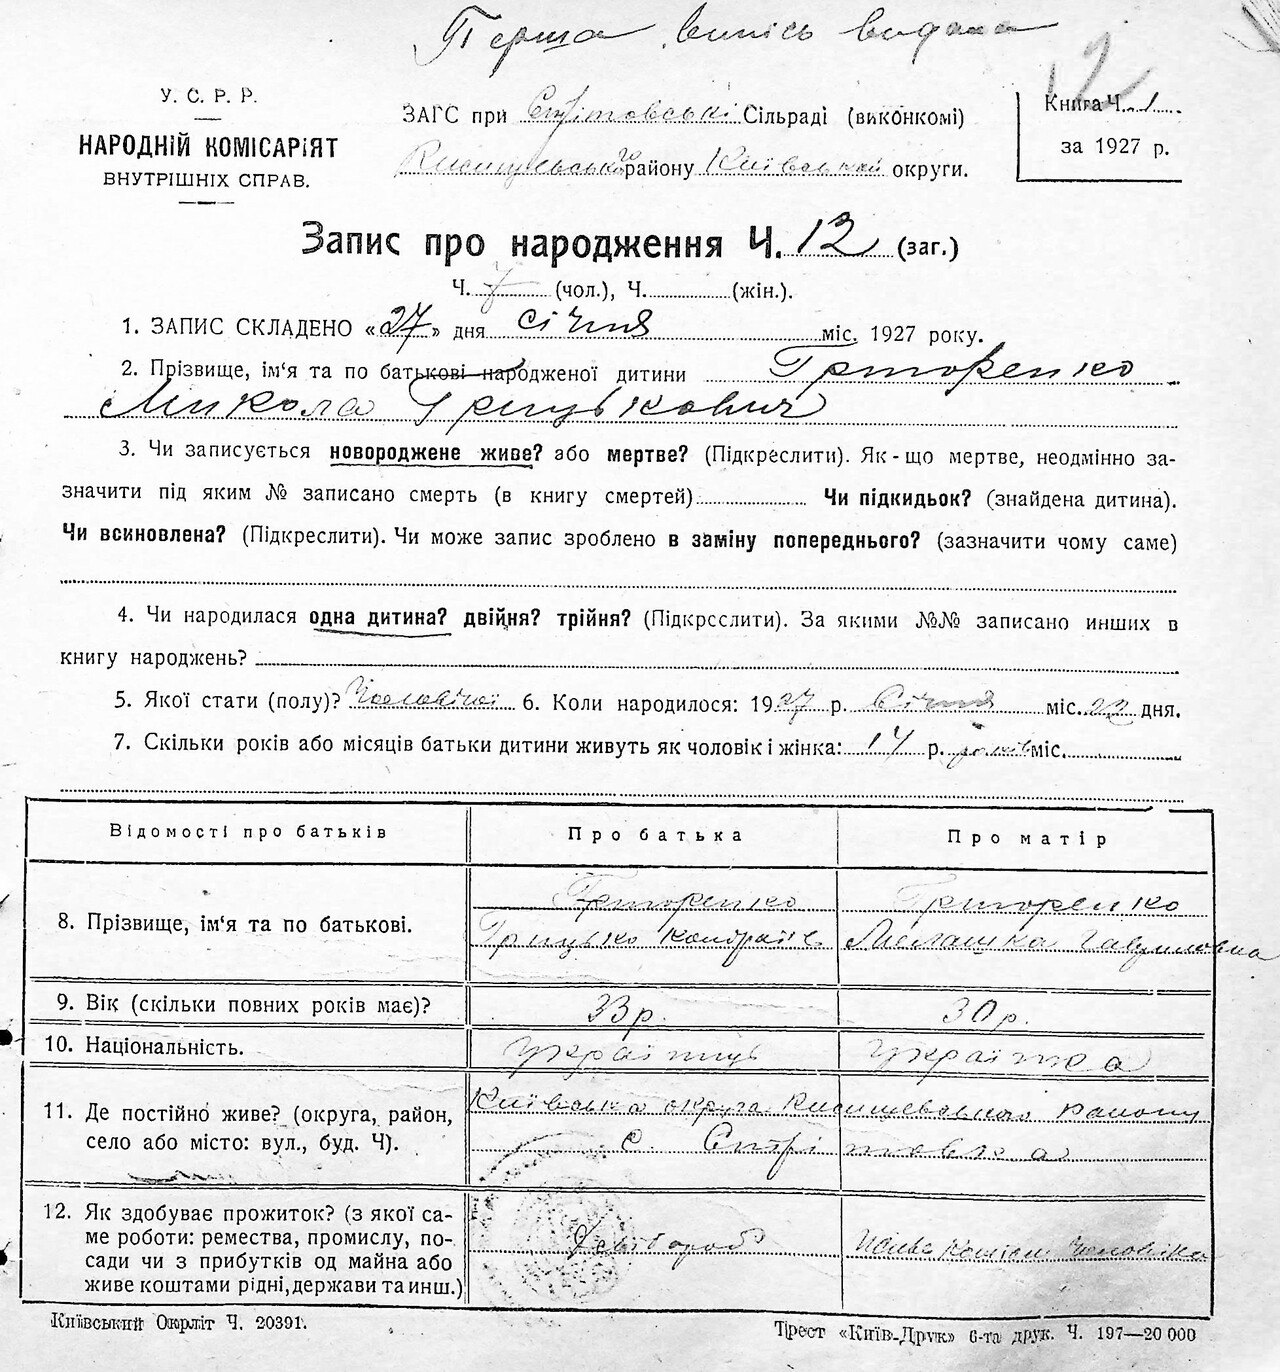 Перша випись видана
12
У. С. Р. Р.
НАРОДНІЙ КОМІСАРІЯТ
ВНУТРІШНІХ СПРАВ.
ЗАГС при Стрітовські Сільраді (виконкомі)
району Київської округи.
Книга Ч. 1
за 1927 р.
Запис про народження Ч. 12 (заг.)
Ч. 7 (чол.), Ч. (жін.).
1. ЗАПИС СКЛАДЕНО «27» дня січня міс. 1927 року.
2. Прізвище, ім'я та по батькові народженої дитини Григоренко
Микола Грицькович
3. Чи записується новороджене живе? або мертве? (Підкреслити). Як-що мертве, неодмінно за-
значити під яким № записано смерть (в книгу смертей) Чи підкидьок? (знайдена дитина).
Чи всиновлена? (Підкреслити). Чи може запис зроблено в заміну попереднього? (зазначити чому саме)
4. Чи народилася одна дитина? двійня? трійня? (Підкреслити). За якими №№ записано инших в
книгу народжень?
5. Якої стати (полу)? Чоловічої 6. Коли народилося: 1927 р. Січня міс. 22 дня.
7. Скільки років або місяців батьки дитини живуть як чоловік і жінка: 14 р. років міс.
Відомості про батьків Про батька Про матір
8. Прізвище, ім'я та по батькові. Григоренко Григоренко
Грицько Кондратів Мелашка Гавриловна
9. Вік (скільки повних років має)? 33 р. 30 р.
10. Національність. Українець Українка
11. Де постійно живе? (округа, район, Київська округа району
село або місто: вул., буд. Ч). с. Стрітовка
12. Як здобуває прожиток? (з якої са-
ме роботи: ремества, промислу, по- Хлібороб
сади чи з прибутків од майна або
живе коштами рідні, держави та инш.)
Київський Окрліт Ч. 20391.
Трест «Київ-Друк» 6-та друк. Ч. 197—20 000